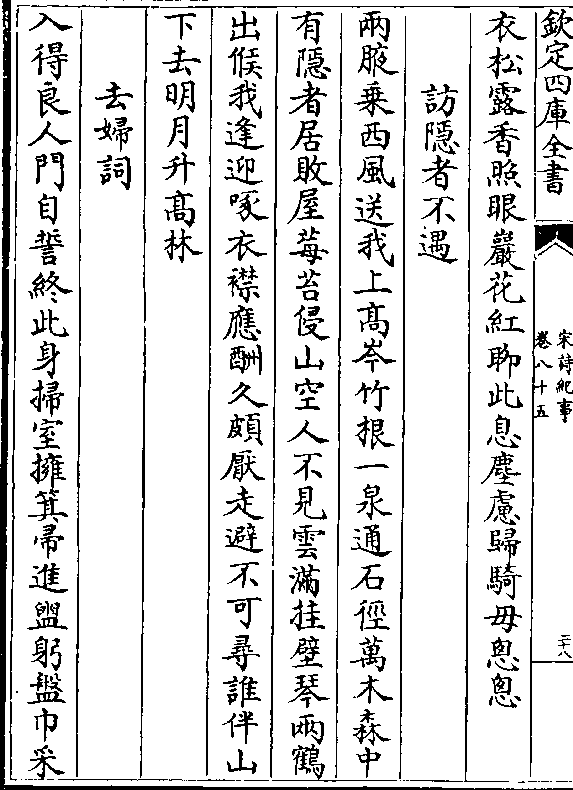 欽定四庫全書
宋詩紀事
卷八十五
三十八
衣松露香照眼巖花紅聊此息塵慮歸騎毋怱怱
訪隱者不遇
兩腋乗西風送我上髙岑竹根一泉通石徑萬木森中
有隱者居敗屋莓苔侵山空人不見雲滿挂壁琴兩鶴
出候我逢迎啄衣襟應酬久頗厭走避不可尋誰伴山
下去明月升髙林
去婦詞
入得良人門自誓終此身掃室擁箕帚進盥躬盤巾采